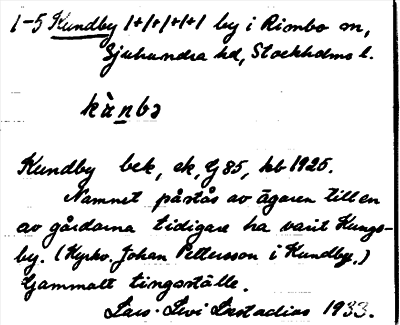 1-5 Kundby 1+1+1+1+1 by i Rimbo sn,
Sjuhundra hd, Stockholms l.
kànbə
Kundby bek, ek, G 85, kb 1925.
Namnet påstås av ägaren till en
av gårdarna tidigare ha varit Kungs-
by. (Kyrkv. Johan Pettersson i Kundby.)
Gammalt tingsställe.
Lars-Levi Læstadius 1933.